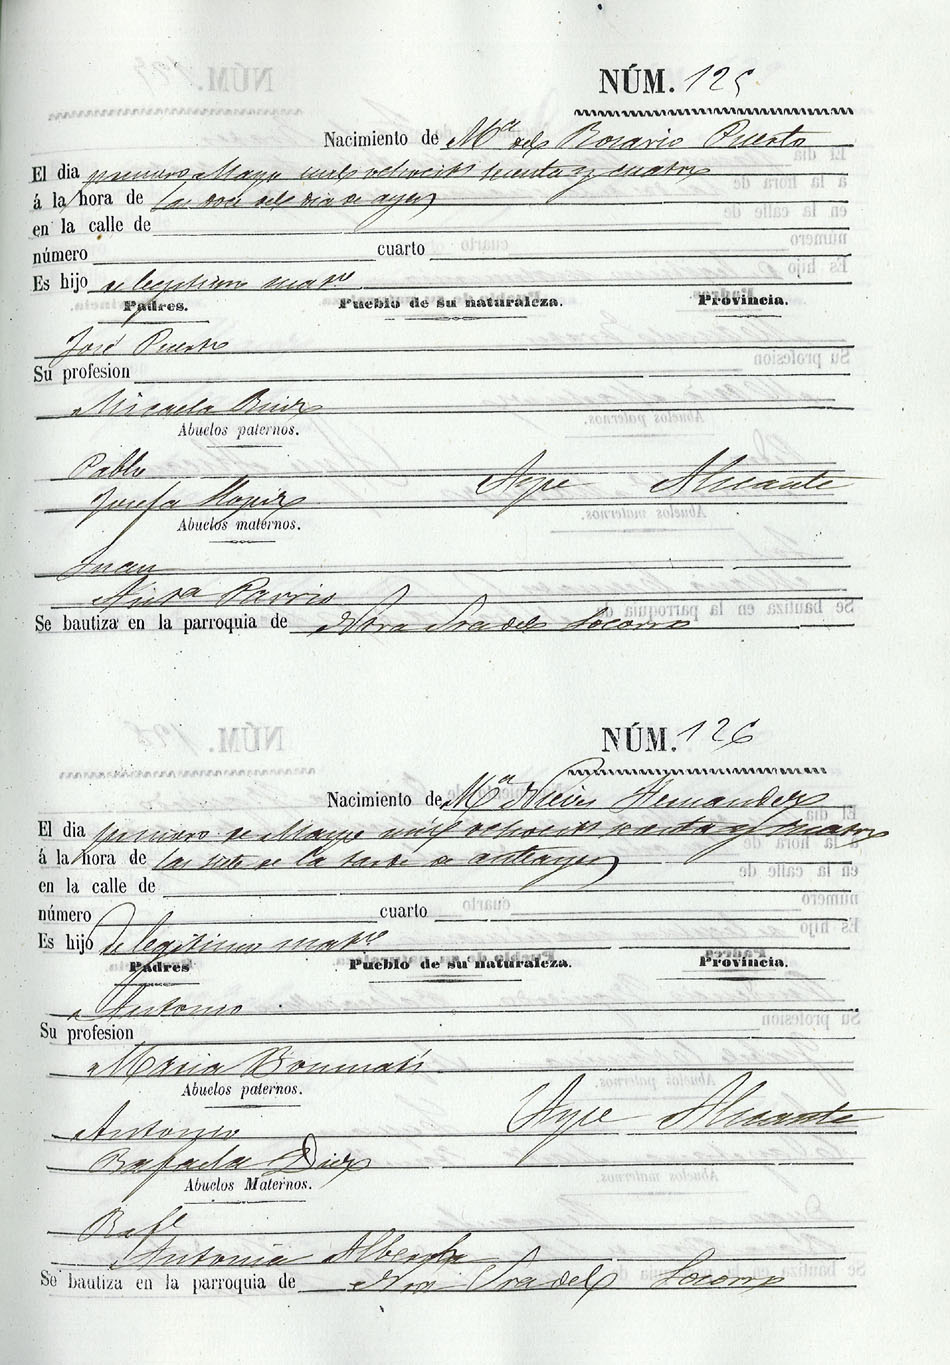 NÚM. 125
Nacimiento de Mª del Rosario Puerto
El dia primero Mayo mil ochocits sesenta y cuatro
á la hora de las doce del dia de ayer
en la calle de
número cuarto
Es hijo de legitimo matº
Padres. Pueblo de su naturaleza. Provincia.
José Puerto
Su profesion
Micaela Ruiz
Abuelos paternos.
Pablo
Josefa Aspe Alicante
Abuelos maternos.
Juan
Antª
Se bautiza en la parroquia de Ntra Sra del Socorro
NÚM. 126
Nacimiento de Mª Nieves Hernandez
El dia primero de Mayo mil ochocits sesenta y cuatro
á la hora de las siete de la tarde de anteayer
en la calle de
número cuarto
Es hijo de legitimo matº
Padres Pueblo de su naturaleza. Provincia.
Antonio
Su profesion
Maria Bonmati
Abuelos paternos.
Antonio Aspe Alicante
Rafaela Diez
Abuelos Maternos.
Rafl
Antonia Alberola
Se bautiza en la parroquia de Ntra Sra del Socorro